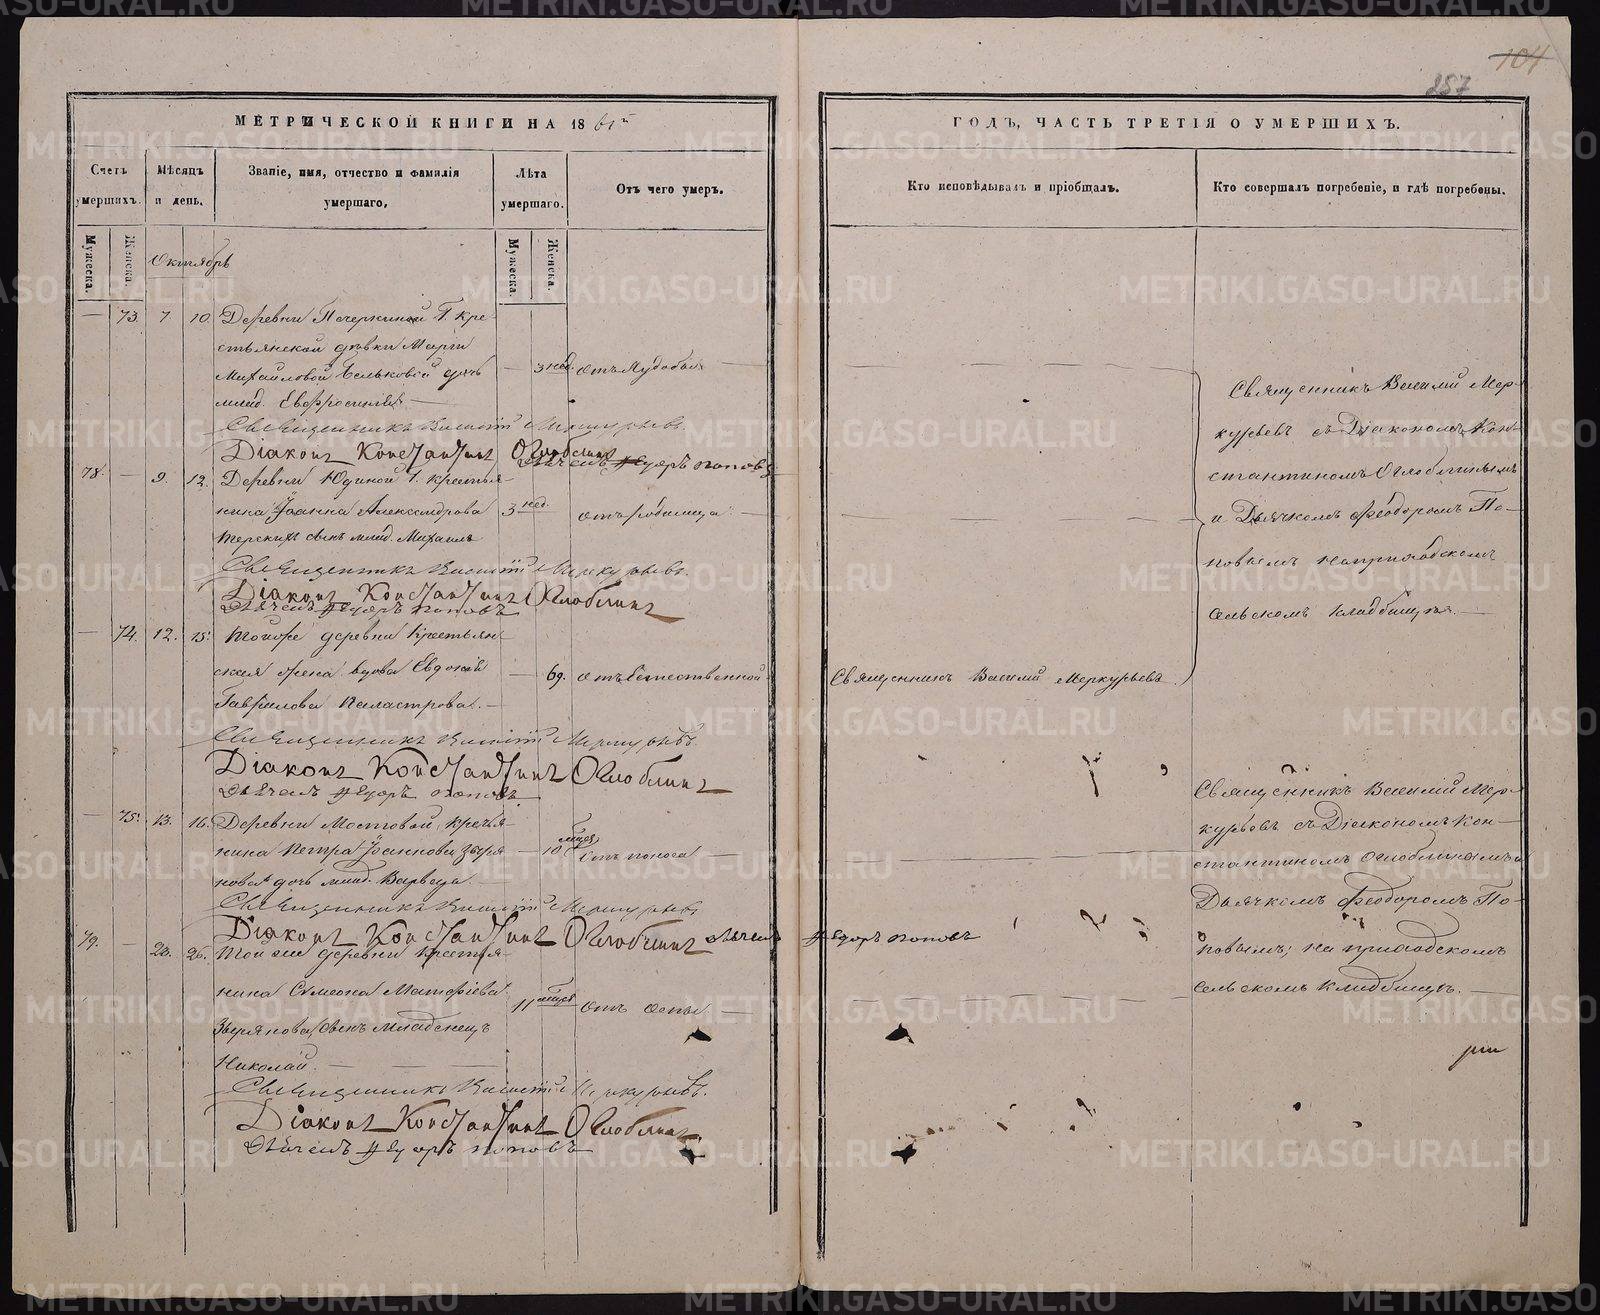 104
257
МЕТРИЧЕСКОЙ КНИГИ НА 1861й
ГОДЪ, ЧАСТЬ ТРЕТІЯ О УМЕРШИХЪ.
Счетъ умершихъ.
Мѣсяцъ и день.
Званіе, имя, отчество и фамилія умершаго.
Лѣта умершаго.
Отъ чего умеръ.
Кто исповѣдывалъ и пріобщалъ.
Кто совершалъ погребеніе, и гдѣ погребены.
Мужеска.
Женска.
Мужеска.
Женска.
Октябрь
— 73. 7 10. Деревни Печеркиной Г. Кре-
стьянской дѣвки Маріи
Михайловой Бельковой дочь — 3 нед.
млад. Евфросинія —
Священникъ Василій Меркурьевъ.
Діаконъ Константинъ Оглоблинъ
Дьячекъ Федоръ Поповъ
78. — 9. 12. Деревни Юдиной Г. Крестья-
нина Іоанна Александрова 3 нед. отъ родимца —
сынъ млад. Михаилъ
Священникъ Василій Меркурьевъ.
Діаконъ Константинъ Оглоблинъ
Дьячекъ Федоръ Поповъ
— 74. 12. 15. Тойже деревни Крестьян-
ская жена вдова Евдокія — 69. отъ естественной
Гаврилова —
Священникъ Василій Меркурьевъ.
Священникъ Василій Меркурьевъ.
Діаконъ Константинъ Оглоблинъ
Дьячекъ Федоръ Поповъ
Священникъ Василій Мер-
курьевъ съ Діакономъ Кон-
стантиномъ Оглоблинымъ
и Дьячкомъ Феодоромъ По-
повымъ на приходскомъ
сельскомъ кладбищѣ. —
— 75. 13. 16. Деревни Мостовой, Крестья-
нина Петра Іоаннова Зыря- — 10 мцев. отъ поноса —
нова дочь млад. Варвара. —
Священникъ Василій Меркурьевъ
Діаконъ Константинъ Оглоблинъ Дьячекъ Федоръ Поповъ
79. — 23. 26. Той же деревни Крестья-
нина Симеона Матфіева 11 мцев отъ оспы —
Зырянова, сынъ младенецъ
Николай. —
Священникъ Василій Меркурьевъ.
Діаконъ Константинъ Оглоблинъ
Дьячекъ Федоръ Поповъ
Священникъ Василій Мер-
курьевъ съ Діакономъ Кон-
стантиномъ Оглоблинымъ и
Дьячкомъ Феодоромъ По-
повымъ, на приходскомъ
сельскомъ кладбищѣ. —
METRIKI.GASO-URAL.RU